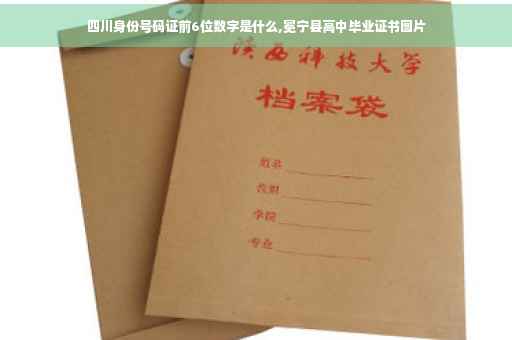 四川身份号码证前6位数字是什么,冕宁县高中毕业证书图片
陕西科技大学
档案袋
姓名
学院
专业